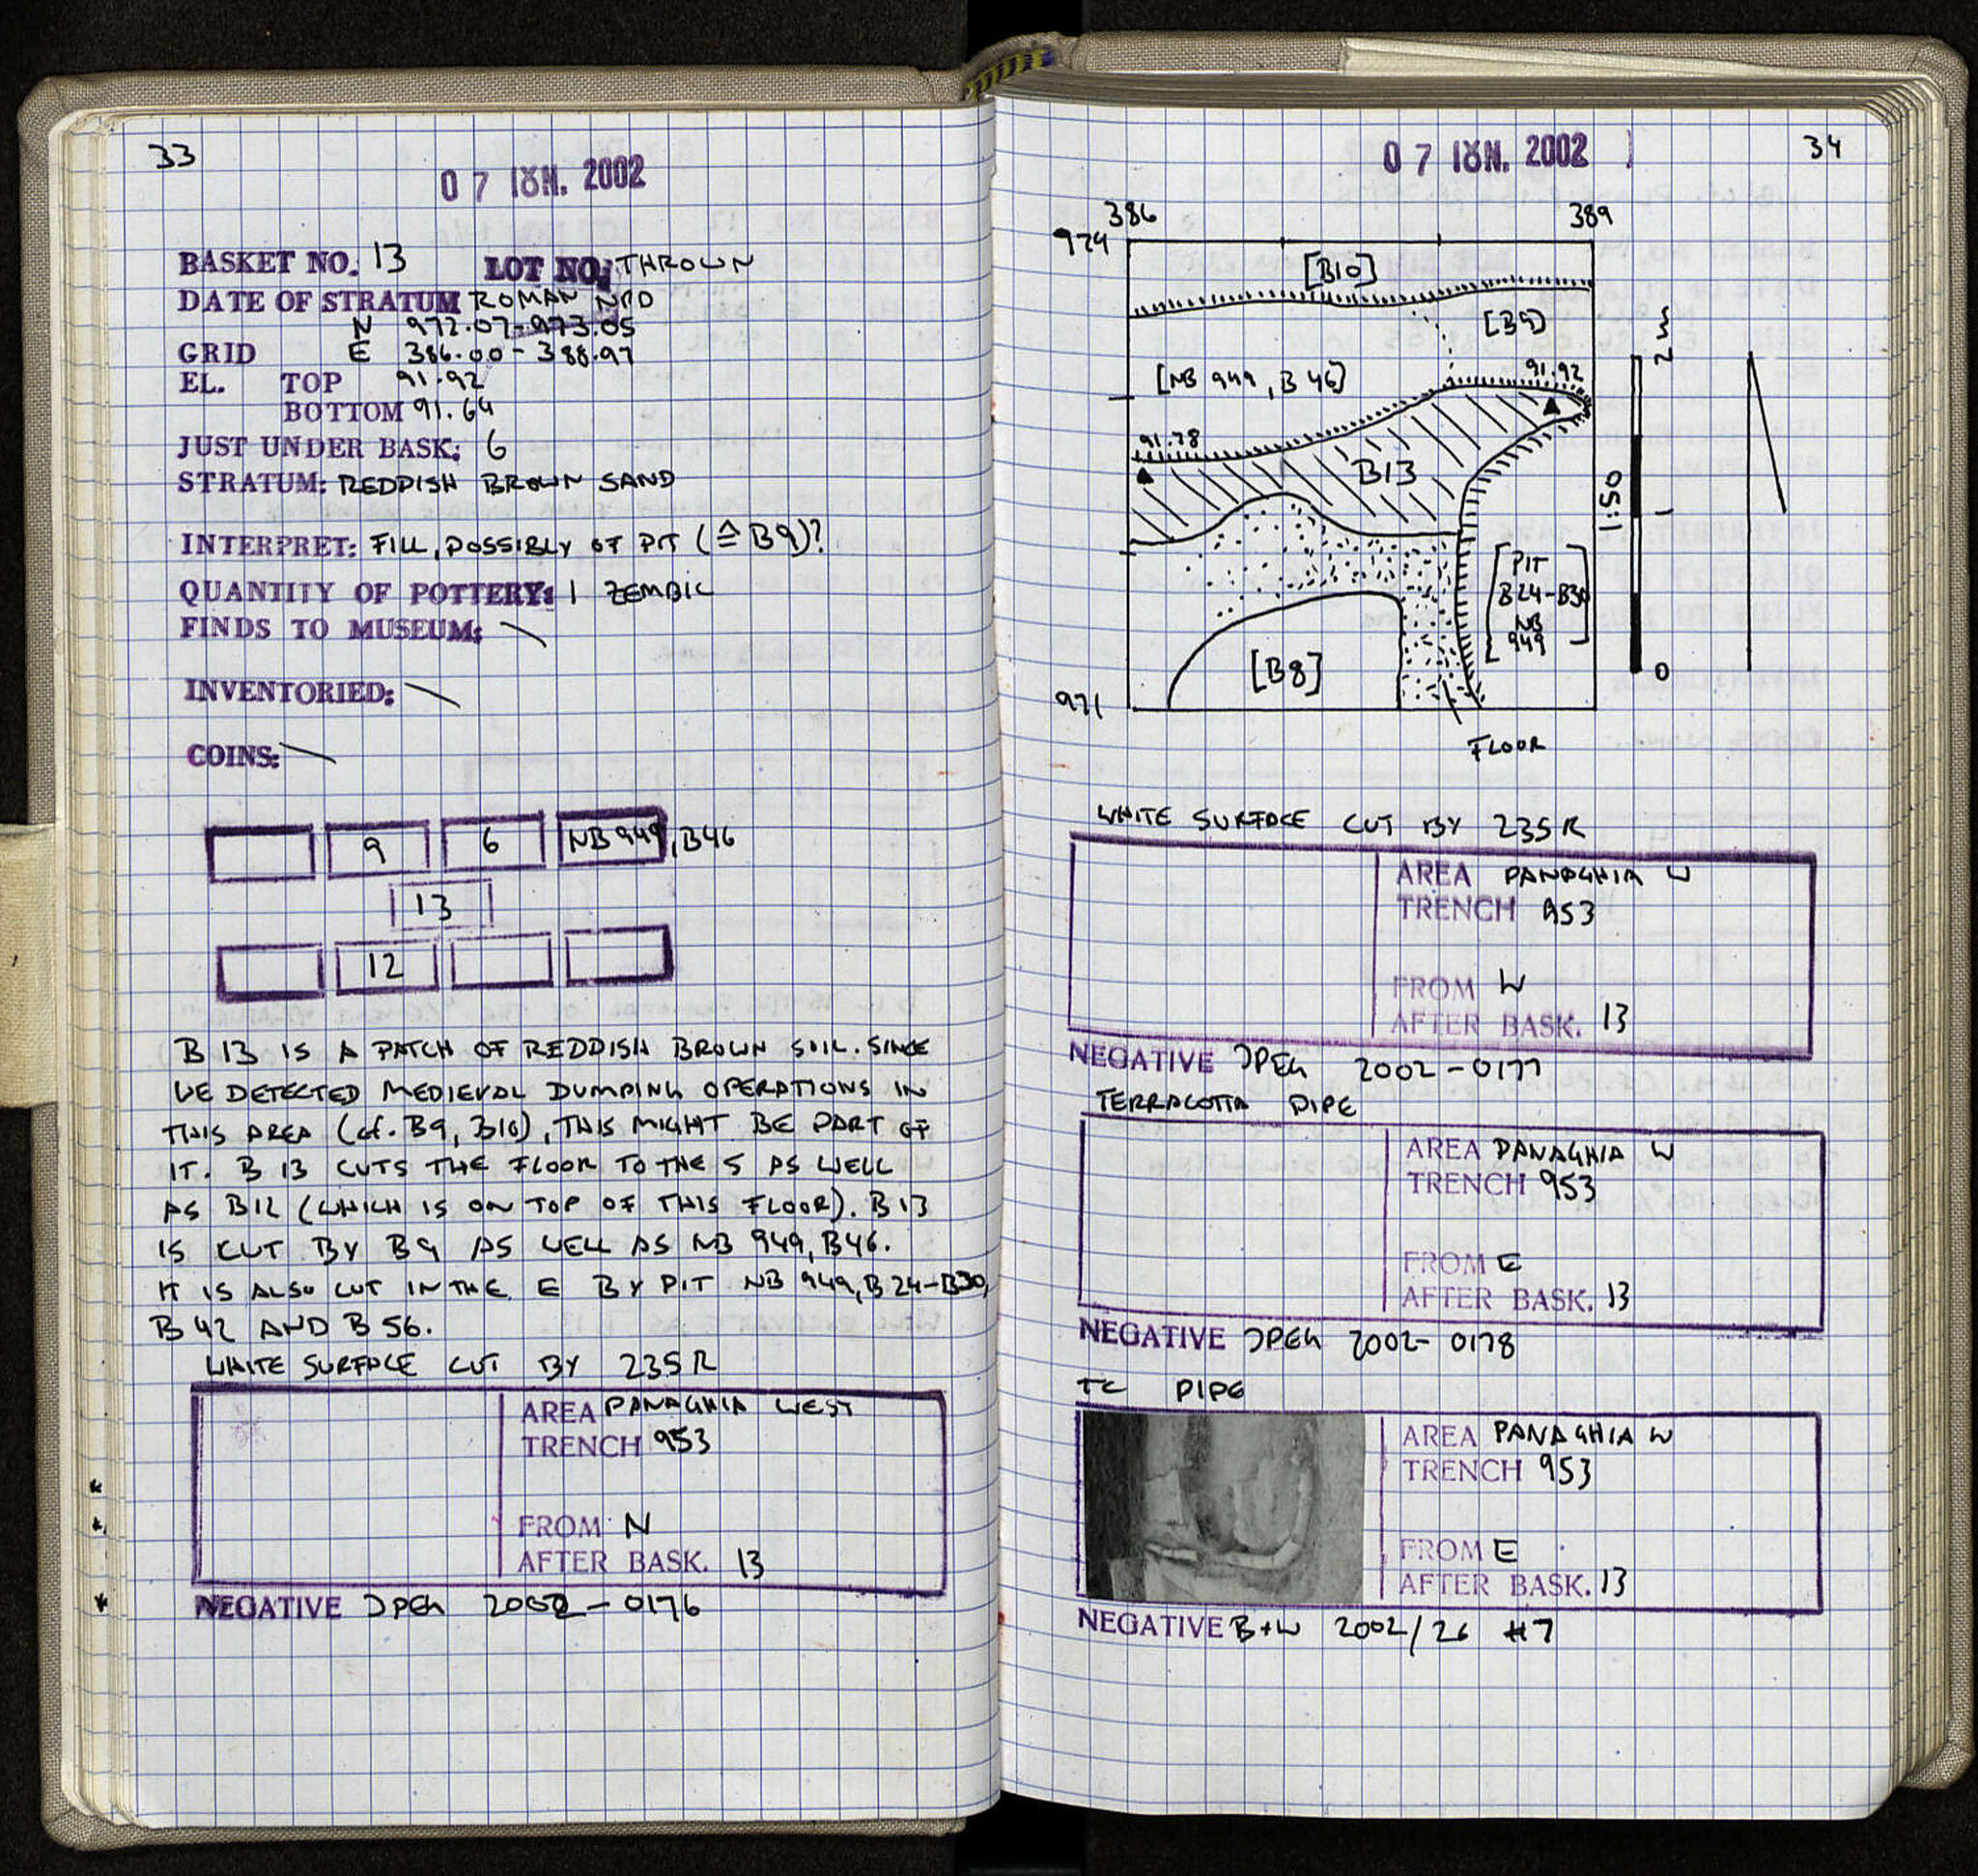 33
07 ΙΟΥΝ. 2002
BASKET NO. 13 LOT NO. THROWN
DATE OF STRATUM ROMAN NPD
N 972.07-973.05
GRID E 386.00-388.97
EL. TOP 91.92
BOTTOM 91.64
JUST UNDER BASK: 6
STRATUM: REDDISH BROWN SAND
INTERPRET: FILL, POSSIBLY OF PIT (≙ B9)?
QUANTITY OF POTTERY: 1 ZEMBIL
FINDS TO MUSEUM: \
INVENTORIED: \
COINS: \
9 6 NB 949, B46
13
12
B 13 IS A PATCH OF REDDISH BROWN SOIL. SINCE
WE DETECTED MEDIEVAL DUMPING OPERATIONS IN
THIS AREA (cf. B9, B10), THIS MIGHT BE PART OF
IT. B 13 CUTS THE FLOOR TO THE S AS WELL
AS B12 (WHICH IS ON TOP OF THIS FLOOR). B13
IS CUT BY B9 AS WELL AS NB 949, B46.
IT IS ALSO CUT IN THE E BY PIT NB 949, B24-B30,
B 42 AND B 56.
WHITE SURFACE CUT BY 235 R
AREA PANAGHIA WEST
TRENCH 953
FROM N
AFTER BASK. 13
NEGATIVE JPEG 2002-0176
07 ΙΟΥΝ. 2002
34
386 389
974
[B10]
[B9]
[NB 949, B 46]
91.92
91.78
B13
[PIT
B24-B30
NB
949]
[B8]
971
FLOOR
2 m
1
0
1:50
WHITE SURFACE CUT BY 235 R
AREA PANAGHIA W
TRENCH 953
FROM W
AFTER BASK. 13
NEGATIVE JPEG 2002-0177
TERRACOTTA PIPE
AREA PANAGHIA W
TRENCH 953
FROM E
AFTER BASK. 13
NEGATIVE JPEG 2002-0178
TC PIPE
AREA PANAGHIA W
TRENCH 953
FROM E
AFTER BASK. 13
NEGATIVE B+W 2002/26 #7